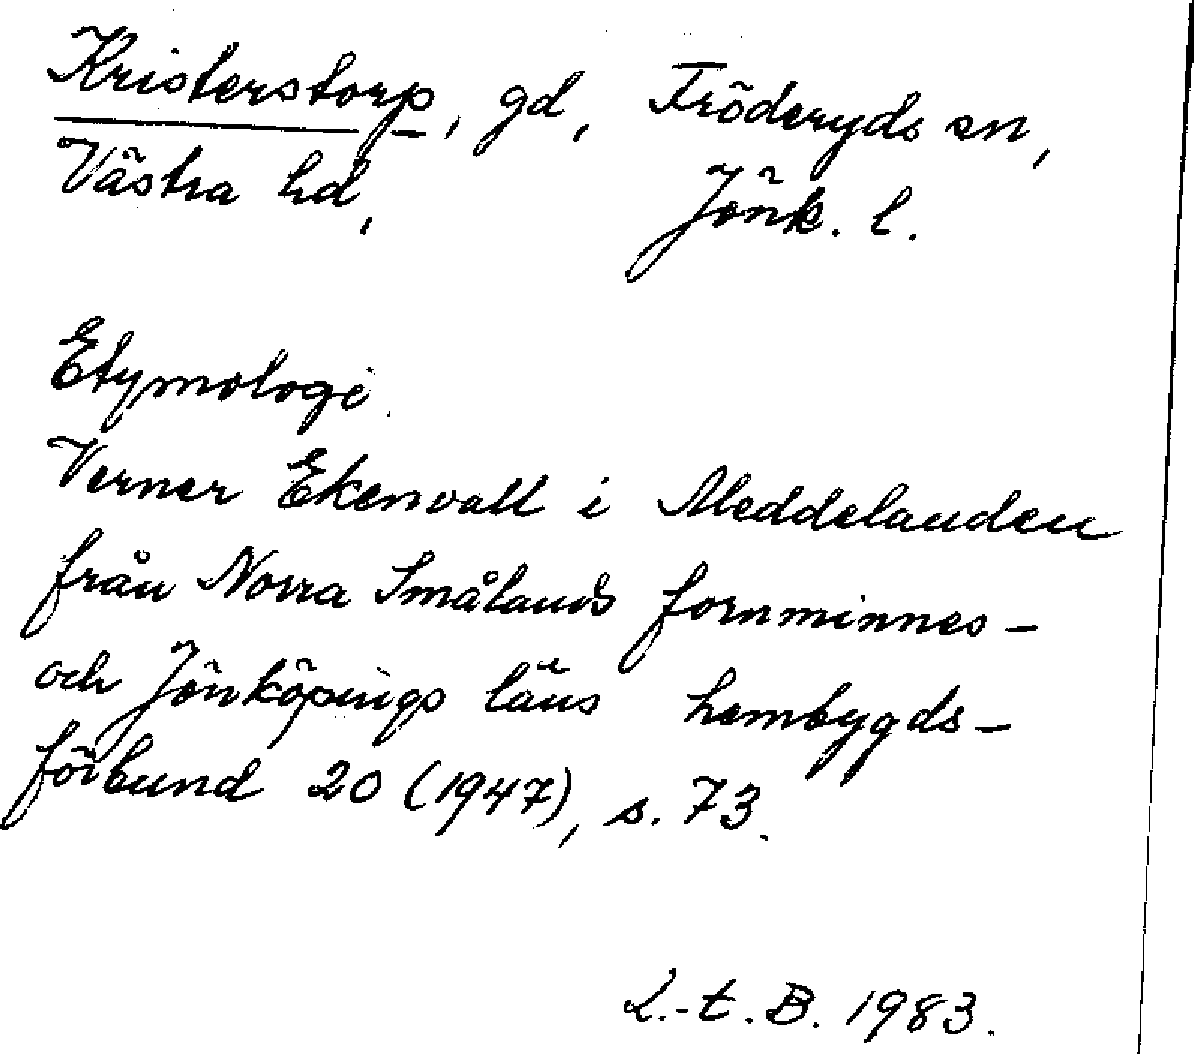 Kristerstorp, gd, Fröderyds sn,
Västra hd, Jönk. l.
Etymologi.
Verner Ekenvall i Meddelanden
från Norra Smålands fornminnes-
och Jönköpings läns hembygds-
förbund 20 (1947), s. 73.
L.-t. B. 1983.